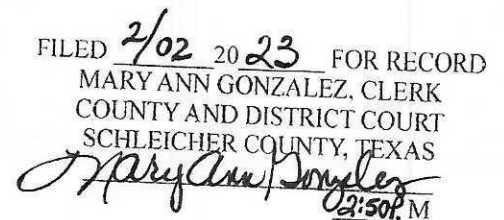 FILED 2/02 2023 FOR RECORD
MARY ANN GONZALEZ, CLERK
COUNTY AND DISTRICT COURT
SCHLEICHER COUNTY, TEXAS
Mary Ann Gonzalez
2:50P. M